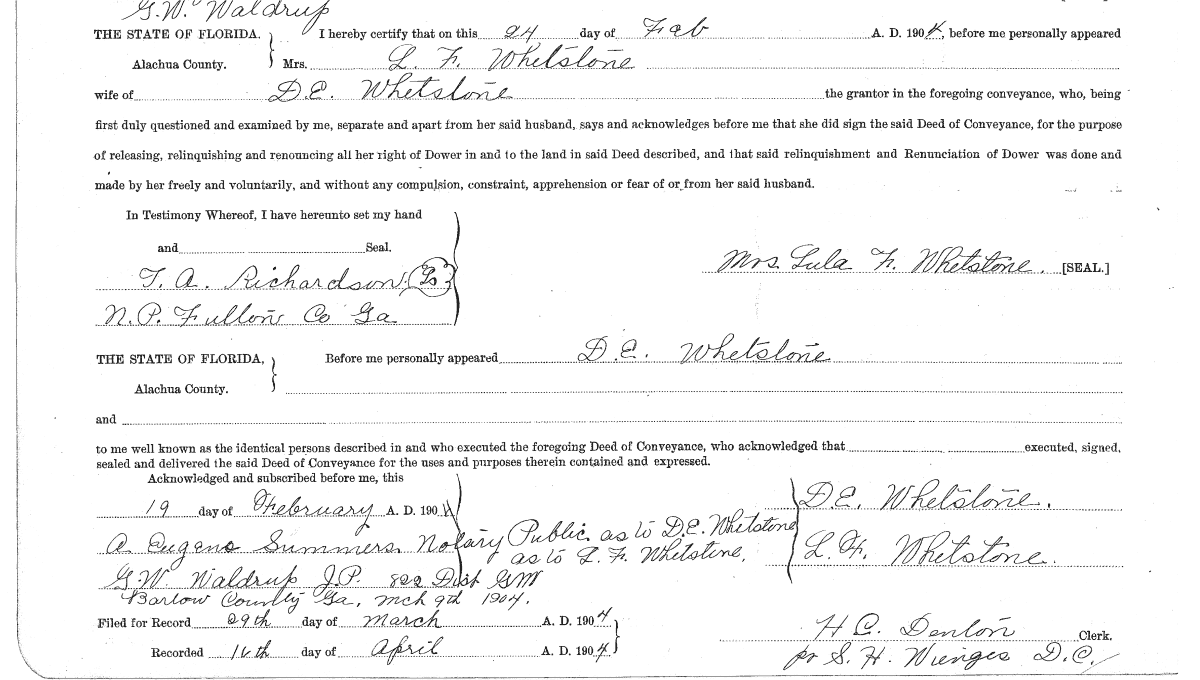 G.W. Waldrup
THE STATE OF FLORIDA, I hereby certify that on this 24 day of Feb A. D. 1904, before me personally appeared
Alachua County. Mrs. L. F. Whetstone
wife of D.E. Whetstone the grantor in the foregoing conveyance, who, being
first duly questioned and examined by me, separate and apart from her said husband, says and acknowledges before me that she did sign the said Deed of Conveyance, for the purpose
of releasing, relinquishing and renouncing all her right of Dower in and to the land in said Deed described, and that said relinquishment and Renunciation of Dower was done and
made by her freely and voluntarily, and without any compulsion, constraint, apprehension or fear of or from her said husband.
In Testimony Whereof, I have hereunto set my hand
and Seal.
Mrs. Lula F. Whetstone. [SEAL.]
T. A. Richardson
N.P. Fulton Co Ga
THE STATE OF FLORIDA, Before me personally appeared D.E. Whetstone
Alachua County.
and
to me well known as the identical persons described in and who executed the foregoing Deed of Conveyance, who acknowledged that executed, signed,
sealed and delivered the said Deed of Conveyance for the uses and purposes therein contained and expressed.
Acknowledged and subscribed before me, this
19 day of February A. D. 1904 D.E. Whetstone.
A Eugene Summers Notary Public as to D.E. Whetstone
as to L. F. Whetstone. L. F. Whetstone.
G.W. Waldrup J.P. 822 Dist GM
Bartow County Ga, Mch 9th 1904.
Filed for Record 29th day of March A. D. 1904
H C. Denton Clerk.
Recorded 16th day of April A. D. 1904
pr S. H. Wienges D.C.